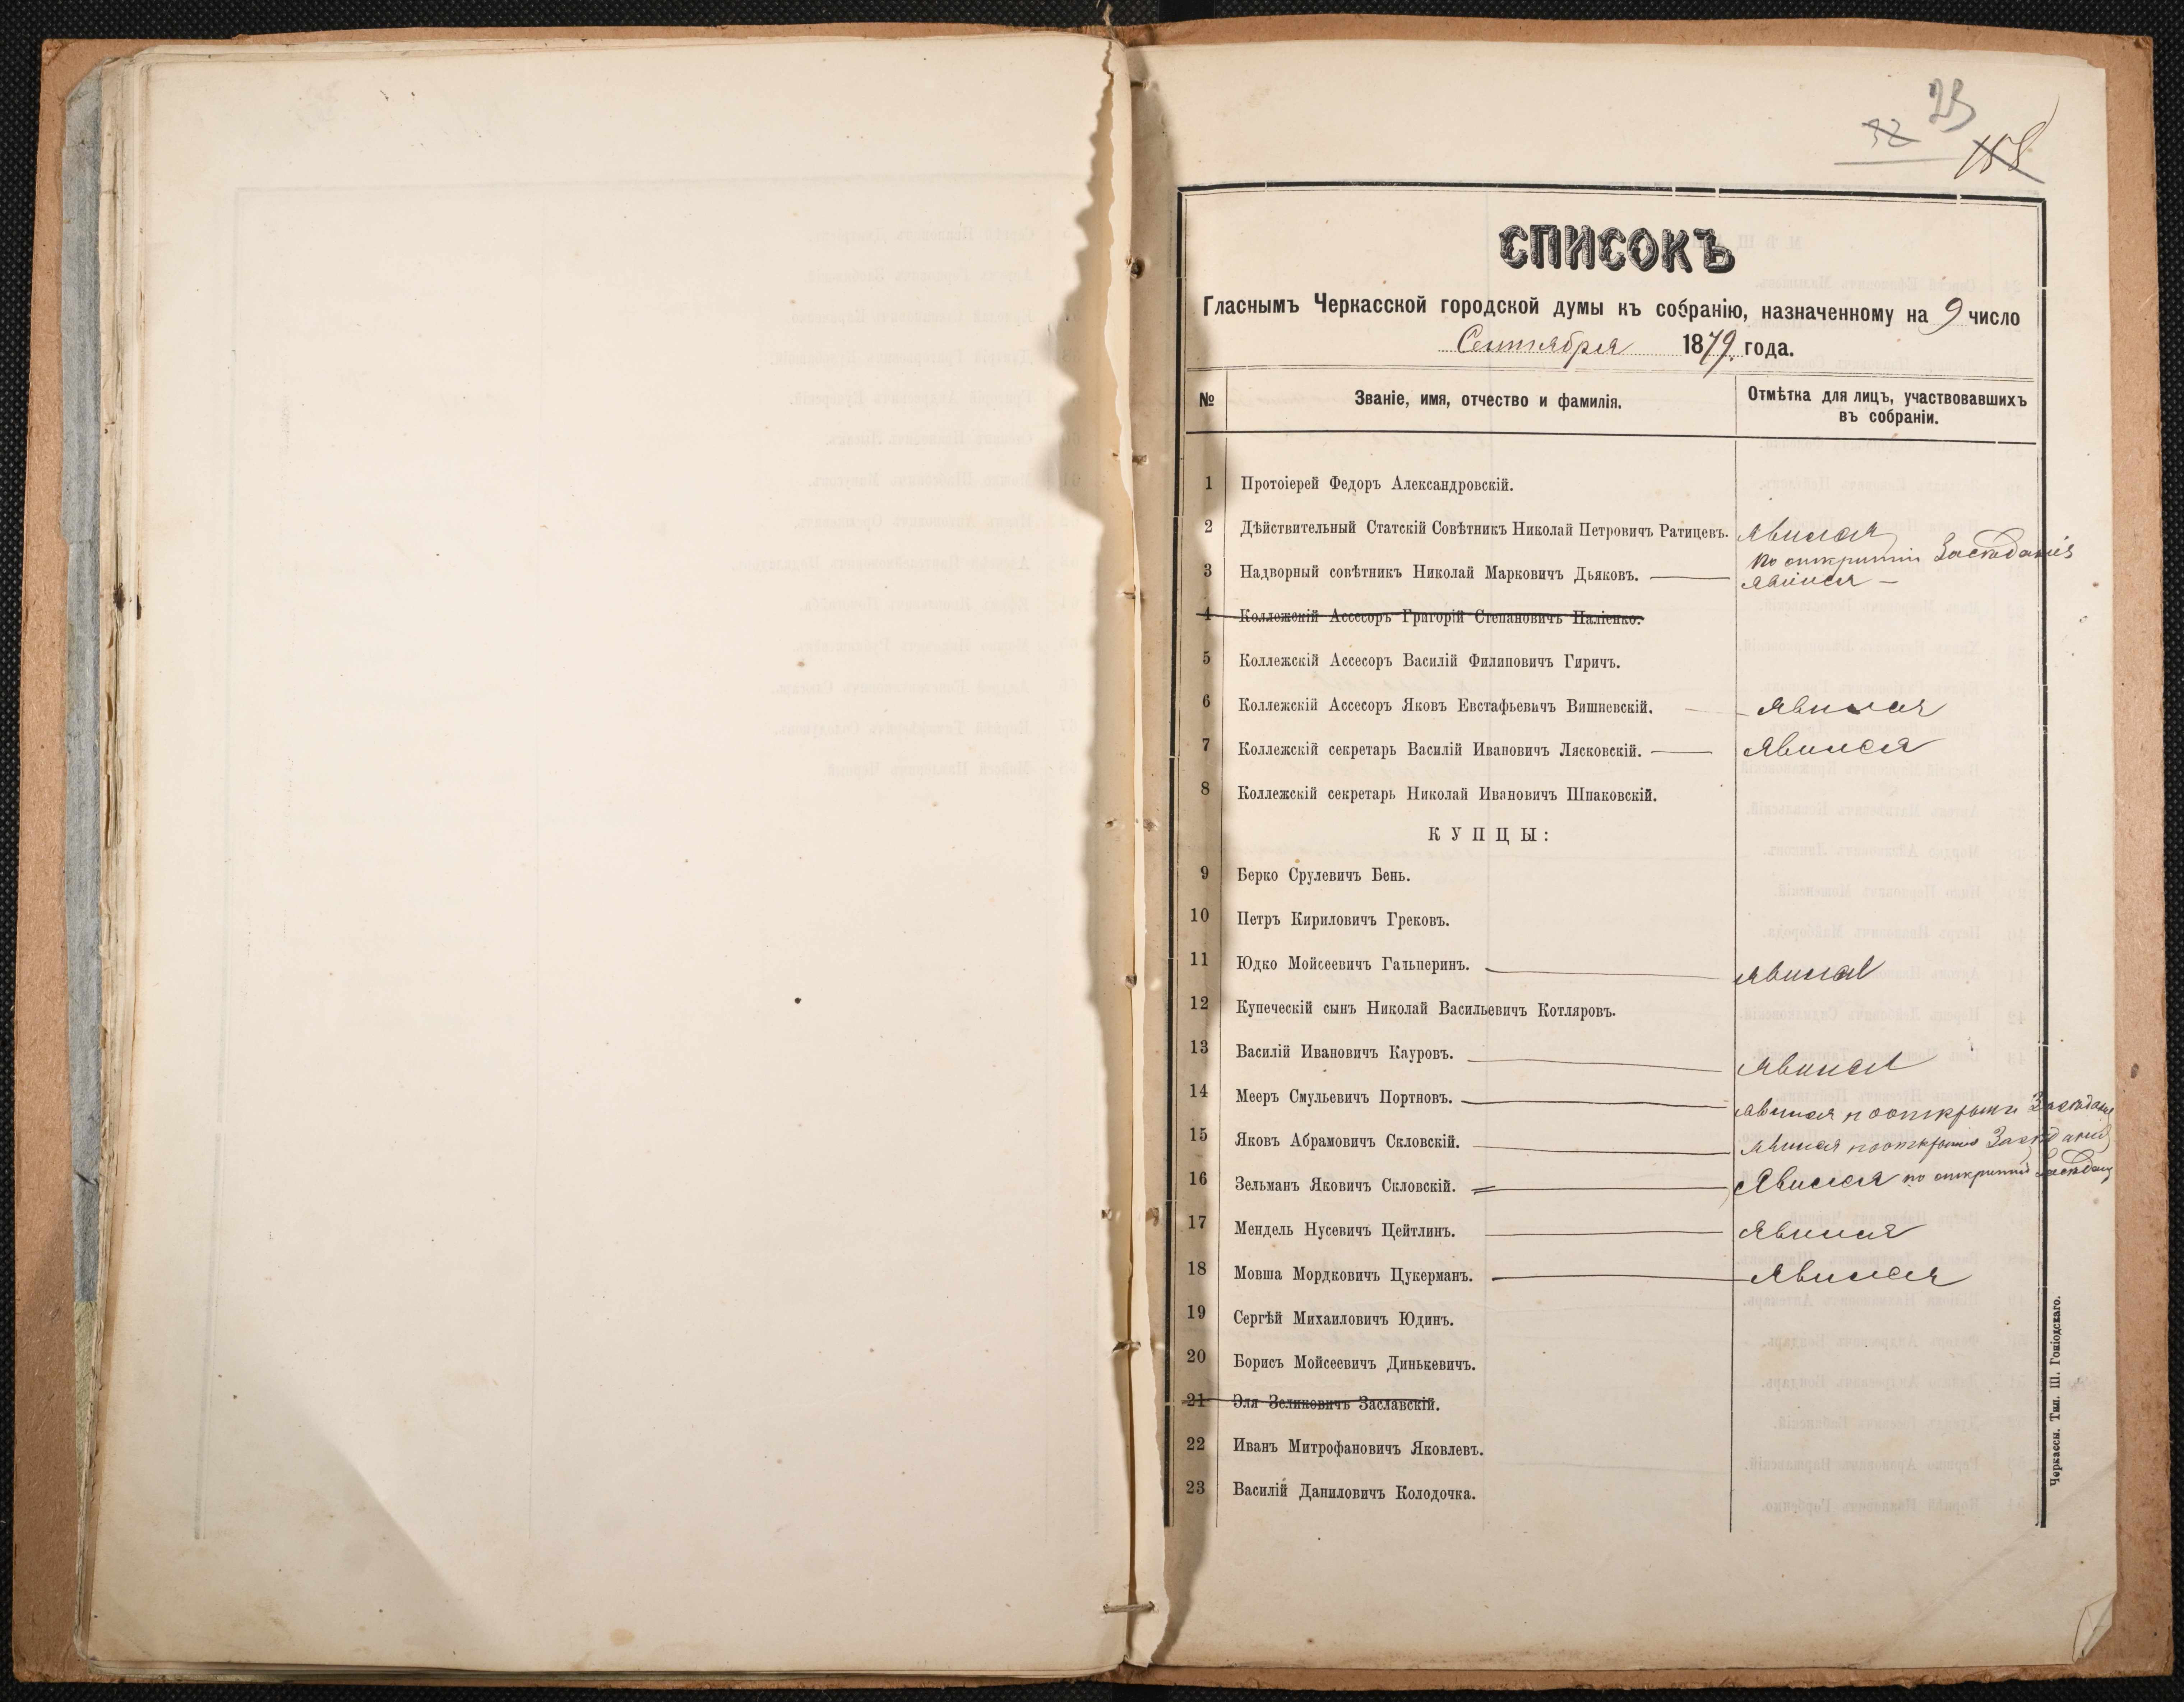 23
32
158
СПИСОКЪ
Гласнымъ Черкасской городской думы къ собранію, назначенному на 9 число
Сентября 1879 года.
№ Званіе, имя, отчество и фамилія. Отмѣтка для лицъ, участвовавшихъ
въ собраніи.
1 Протоіерей Федоръ Александровскій.
2 Дѣйствительный Статскій Совѣтникъ Николай Петровичъ Ратицевъ. явился
по открытіи Засѣданія
3 Надворный совѣтникъ Николай Марковичъ Дьяковъ. явился
4 Коллежскій Ассесоръ Григорій Степановичъ Паліенко.
5 Коллежскій Ассесоръ Василій Филиповичъ Гиричъ.
6 Коллежскій Ассесоръ Яковъ Евстафьевичъ Вишневскій. явился
7 Коллежскій секретарь Василій Ивановичъ Лясковскій. явился
8 Коллежскій секретарь Николай Ивановичъ Шпаковскій.
КУПЦЫ:
9 Берко Срулевичъ Бень.
10 Петръ Кириловичъ Грековъ.
11 Юдко Мойсеевичъ Гальперинъ. явился
12 Купеческій сынъ Николай Васильевичъ Котляровъ.
13 Василій Ивановичъ Кауровъ. явился
14 Мееръ Смульевичъ Портновъ. явился по открытіи Засѣданія
15 Яковъ Абрамовичъ Скловскій. явился по открытіи Засѣданія
16 Зельманъ Яковичъ Скловскій. Явился по открытіи Засѣдан
17 Мендель Нусевичъ Цейтлинъ. явился
18 Мовша Мордковичъ Цукерманъ. явился
19 Сергѣй Михаиловичъ Юдинъ.
20 Борисъ Мойсеевичъ Динькевичъ.
21 Эля Зеликовичъ Заславскій.
22 Иванъ Митрофановичъ Яковлевъ.
23 Василій Даниловичъ Колодочка.
Черкассы. Тип. Ш. Гоніодскаго.